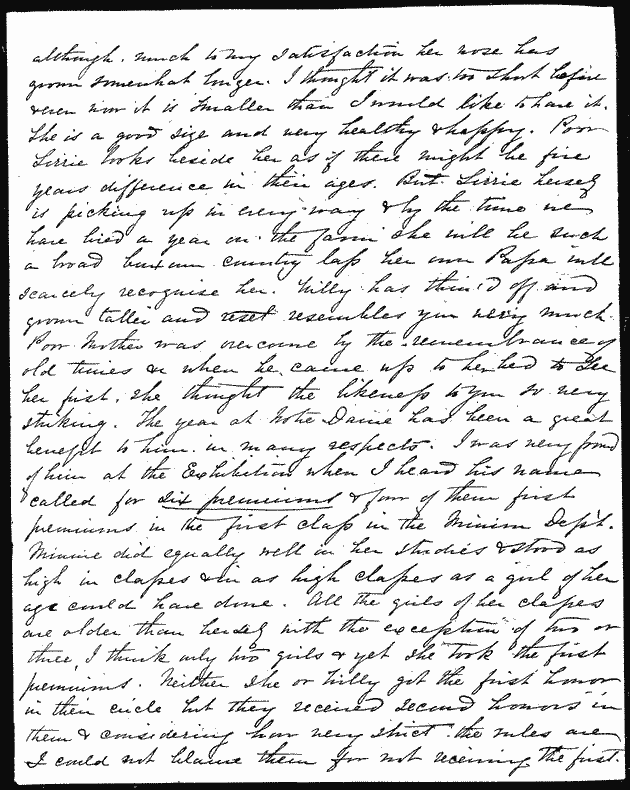 although. much to my satisfaction her nose has
grown somewhat longer. I thought it was too short before
& even now it is smaller than I would like to have it.
She is a good size and very healthy & happy. Poor
Lizzie looks beside her as if there might be five
years difference in their ages. But Lizzie herself
is picking up in every way & by the time we
have lived a year on the farm she will be such
a broad buxum country lass her own Papa will
scarcely recognise her. Willy has thin'd off and
grown taller and resembles you very much.
Poor Mother was overcome by the remembrance of
old times & when he came up to her bed to see
her first. She thought the likeness to you so very
striking. The year at Notre Dame has been a great
benefit to him in many respects. I was very proud
of him at the Exhibition when I heard his name
called for six premiums & four of them first
premiums in the first class in the Minim Dep't.
Minnie did equally well in her studies & stood as
high in classes & in as high classes as a girl of her
age could have done. All the girls of her classes
are older than herself with the exception of two or
three, I think only two girls & yet she took the first
premiums. Neither she or Willy got the first honor
in their circle but they received second honors in
them & considering how very strict the rules are
I could not blame them for not receiving the first.